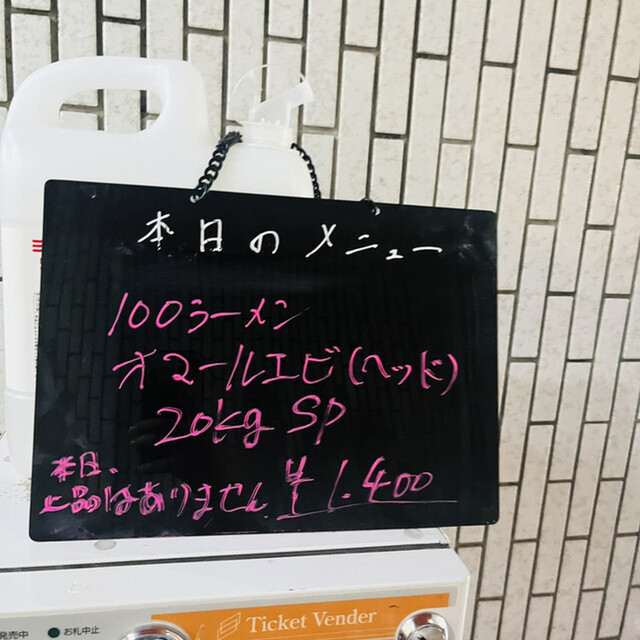 本日のメニュー
100ラーメン
オマールエビ(ヘッド)
20kg SP
本日、
上品はありません ¥1.400
発売中 お札中止
Ticket Vender